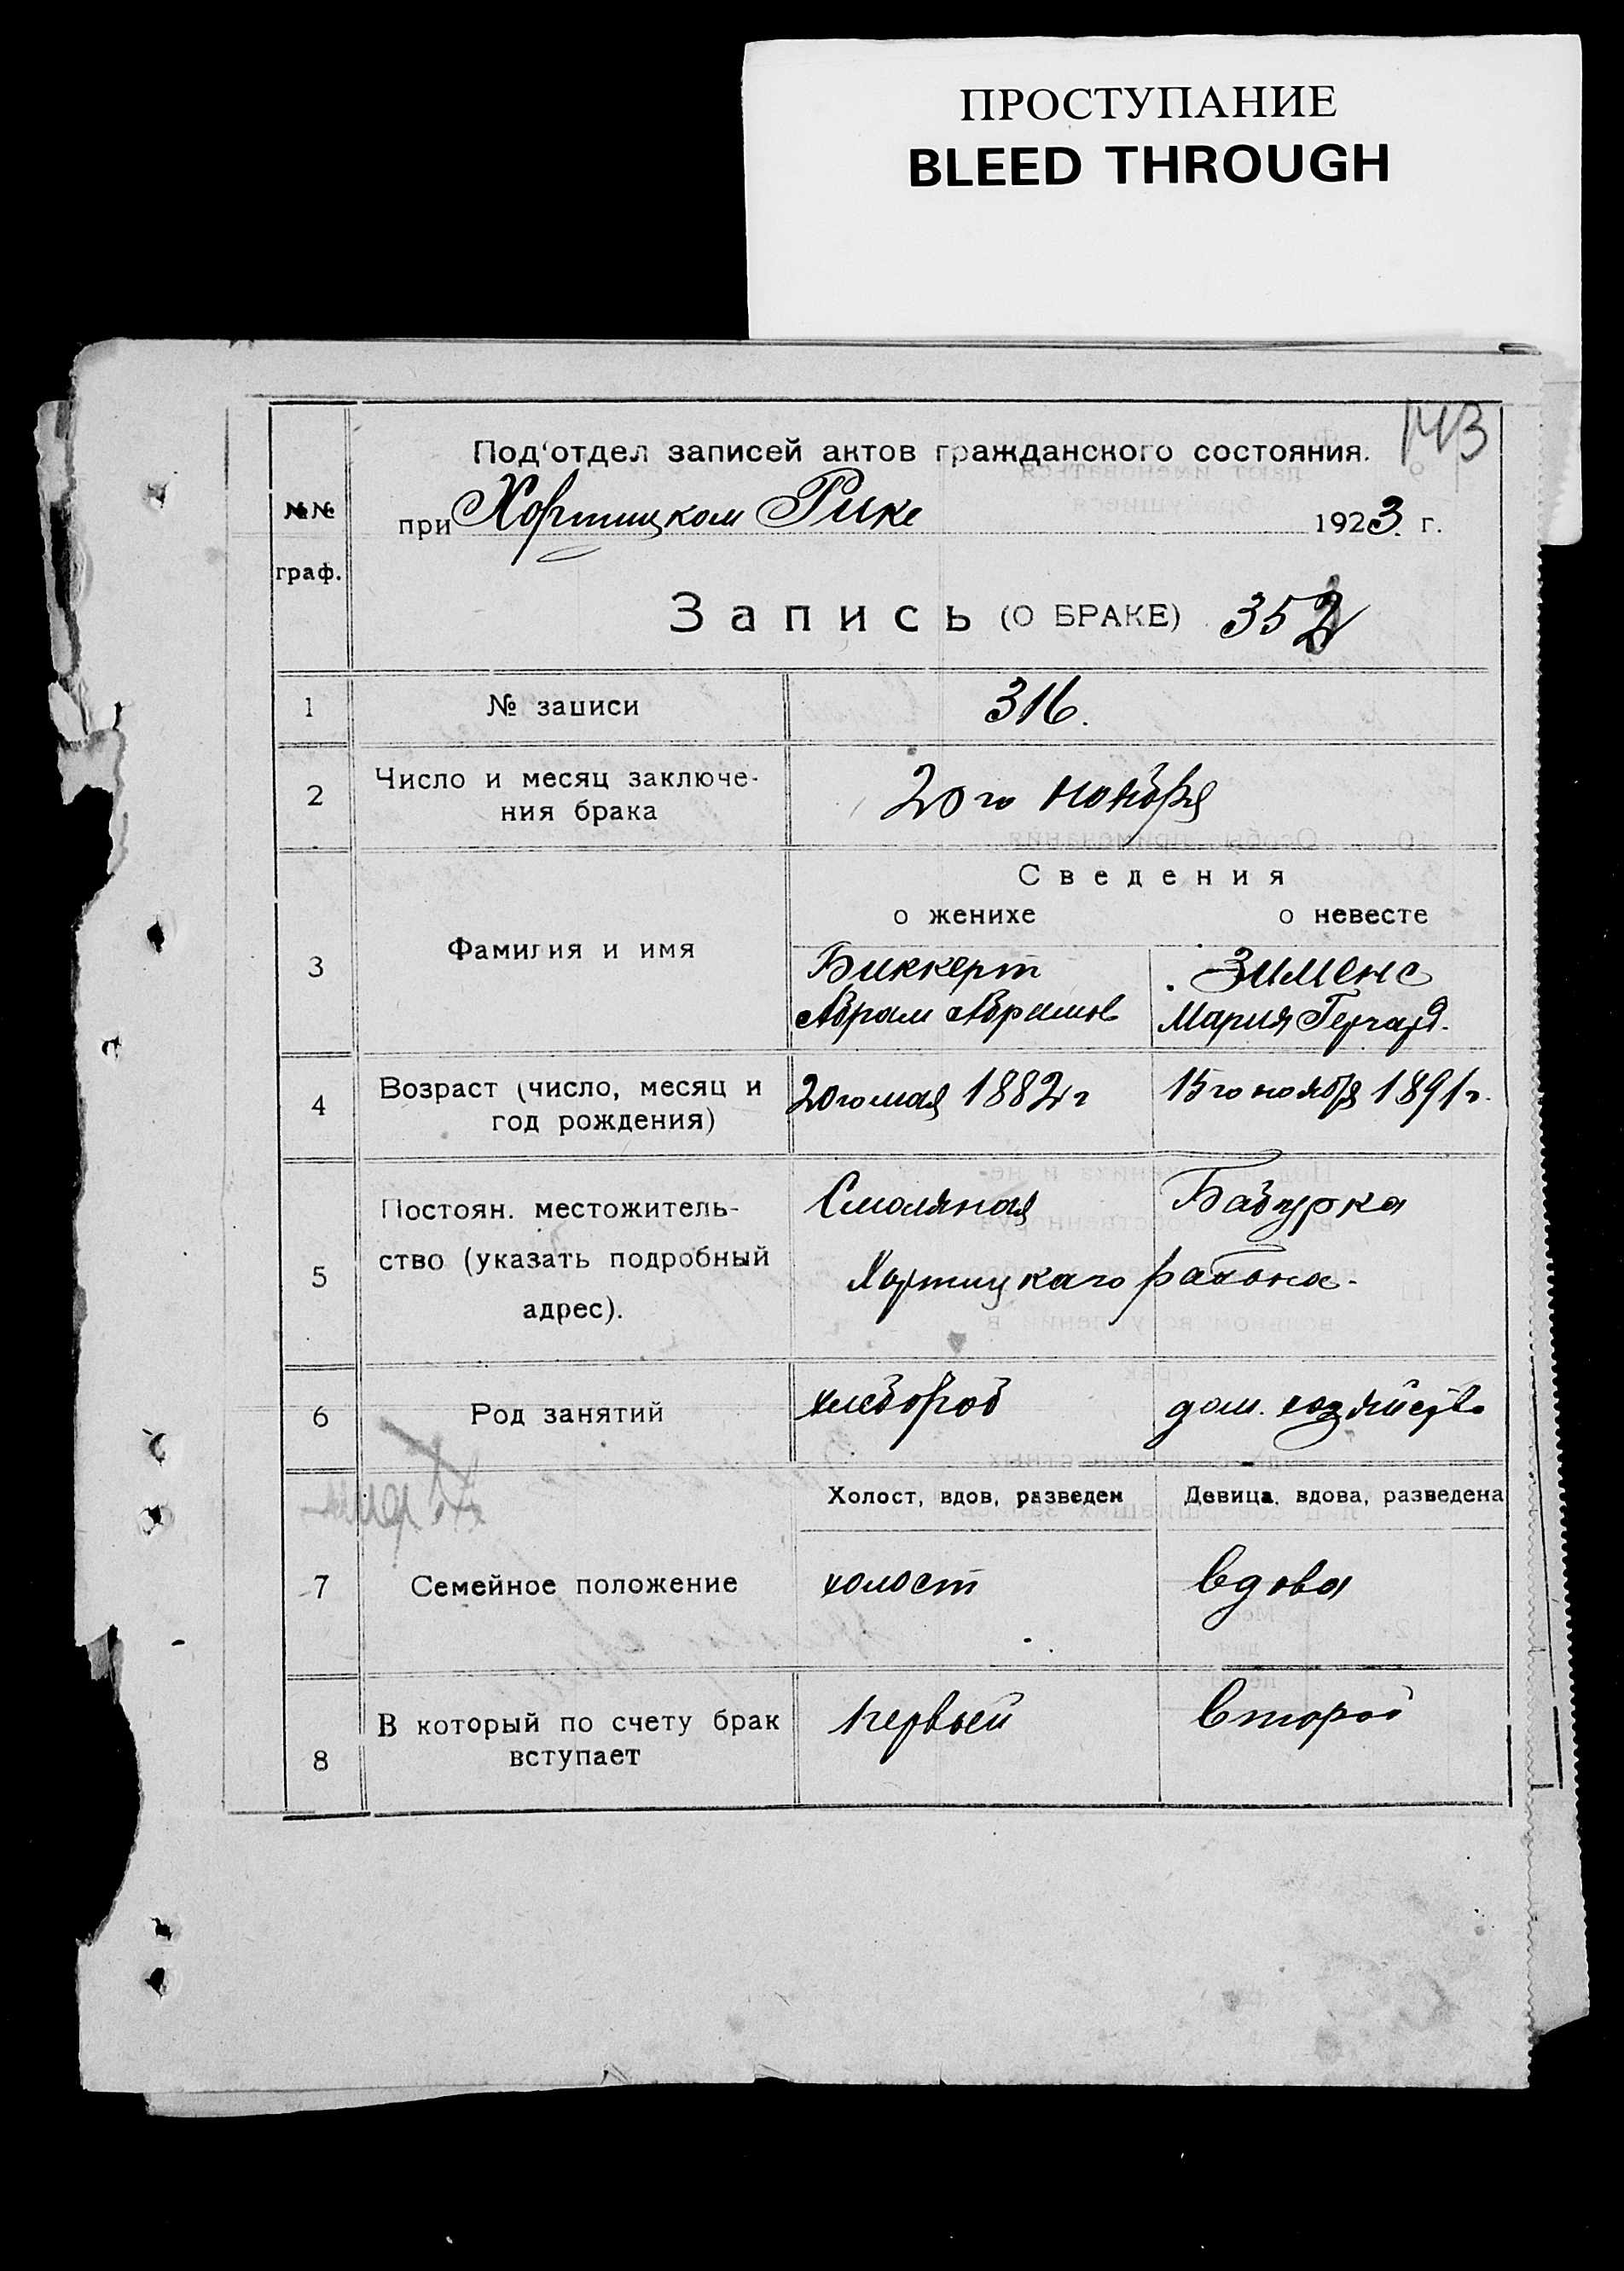 ПРОСТУПАНИЕ
BLEED THROUGH
143
Под'отдел записей актов гражданского состояния.
№№ граф.
при Хортицком Рике 1923. г.
Запись (О БРАКЕ) 352
1 № записи 316.
2 Число и месяц заключе-
ния брака 20го ноября
Сведения
о женихе о невесте
3 Фамилия и имя Биккерт Зименс
Абрам Абрамов Мария Герард.
4 Возраст (число, месяц и
год рождения) 20го мая 1882 г 15го ноября 1891 г.
5 Постоян. местожитель-
ство (указать подробный
адрес). Смоляная Бабурка
Хортицкаго района.
6 Род занятий хлебороб дом. хозяйство
Холост, вдов, разведен Девица, вдова, разведена
7 Семейное положение холост вдова
8 В который по счету брак
вступает первый второй